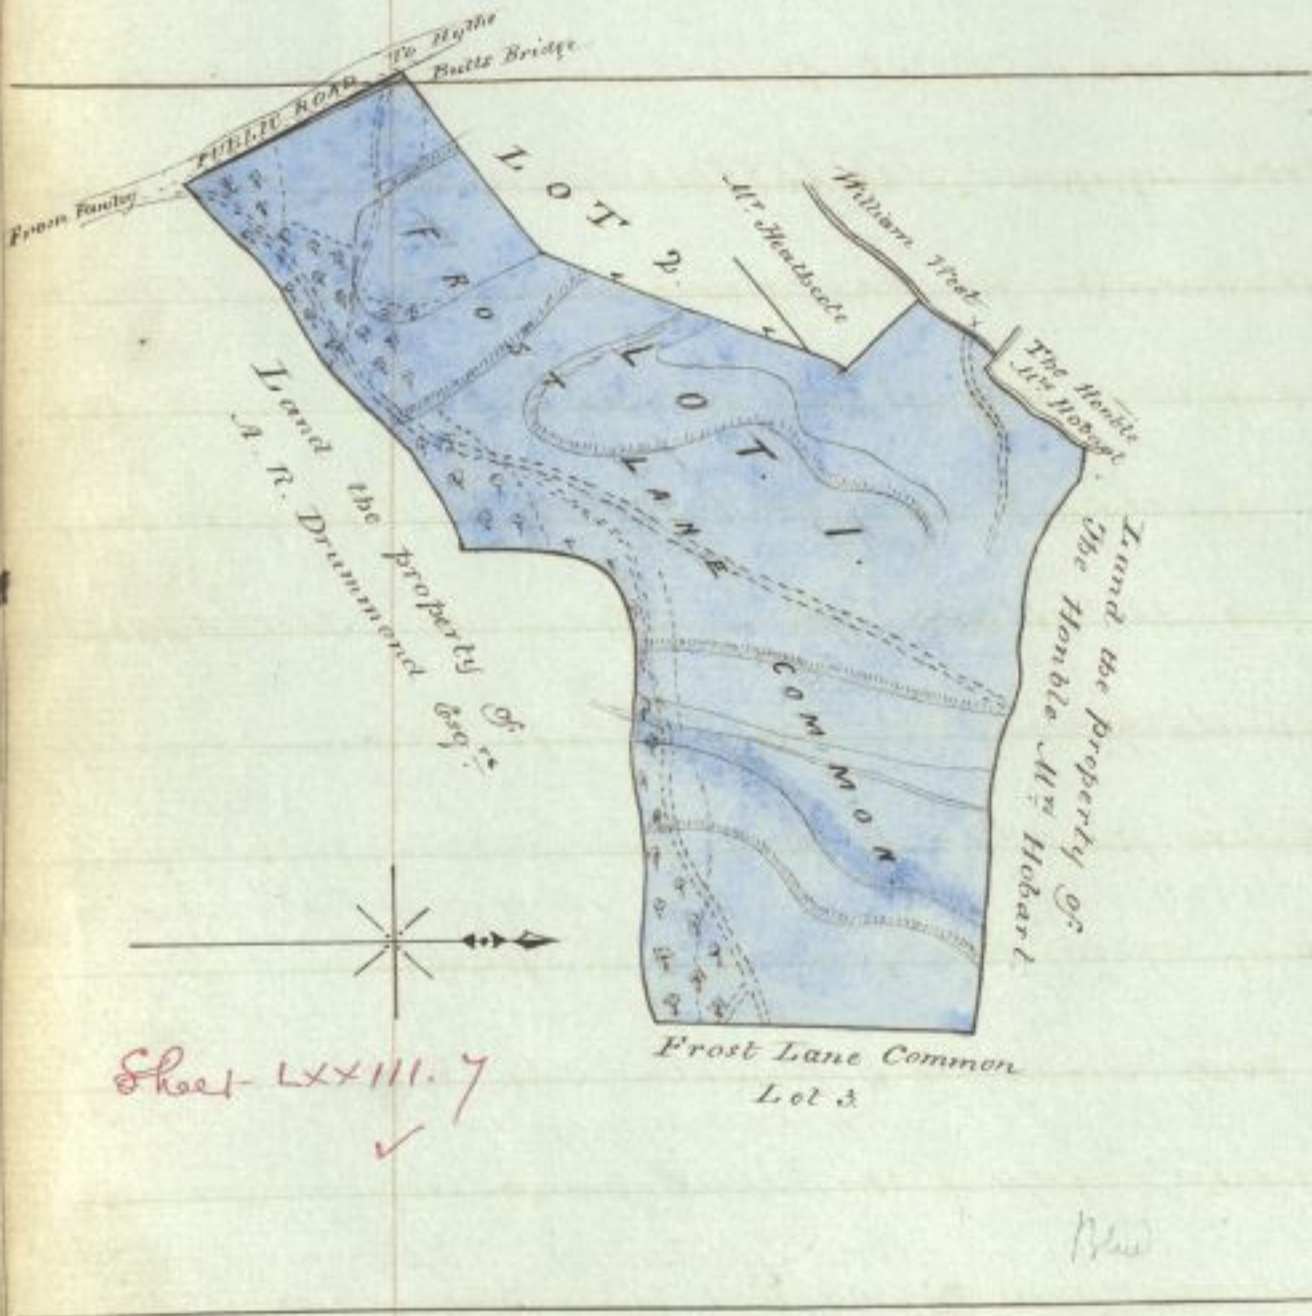 To Hythe
Butts Bridge
PUBLIC ROAD
From Fawley
LOT 2.
Mr. Heathcote
William West
The Honble
Mrs Hobart
FROST
LANE
COMMON
LOT. 1.
Land the property of
A. R. Drummond Esqre.
Land the property of
The Honble Mrs Hobart
Frost Lane Common
Lot 3.
Sheet LXXIII. 7
Blue